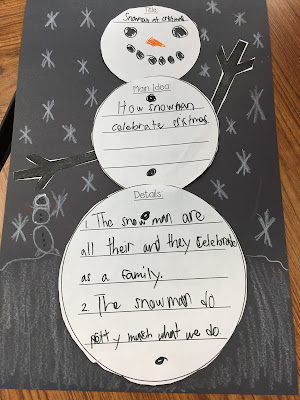 Title
Snowman at cristmas
Main Idea:
How snowman
celebrate cristmas
Details:
1. The snow man are
all their and they celebrate
as a family.
2. The snowman do
pretty much what we do.